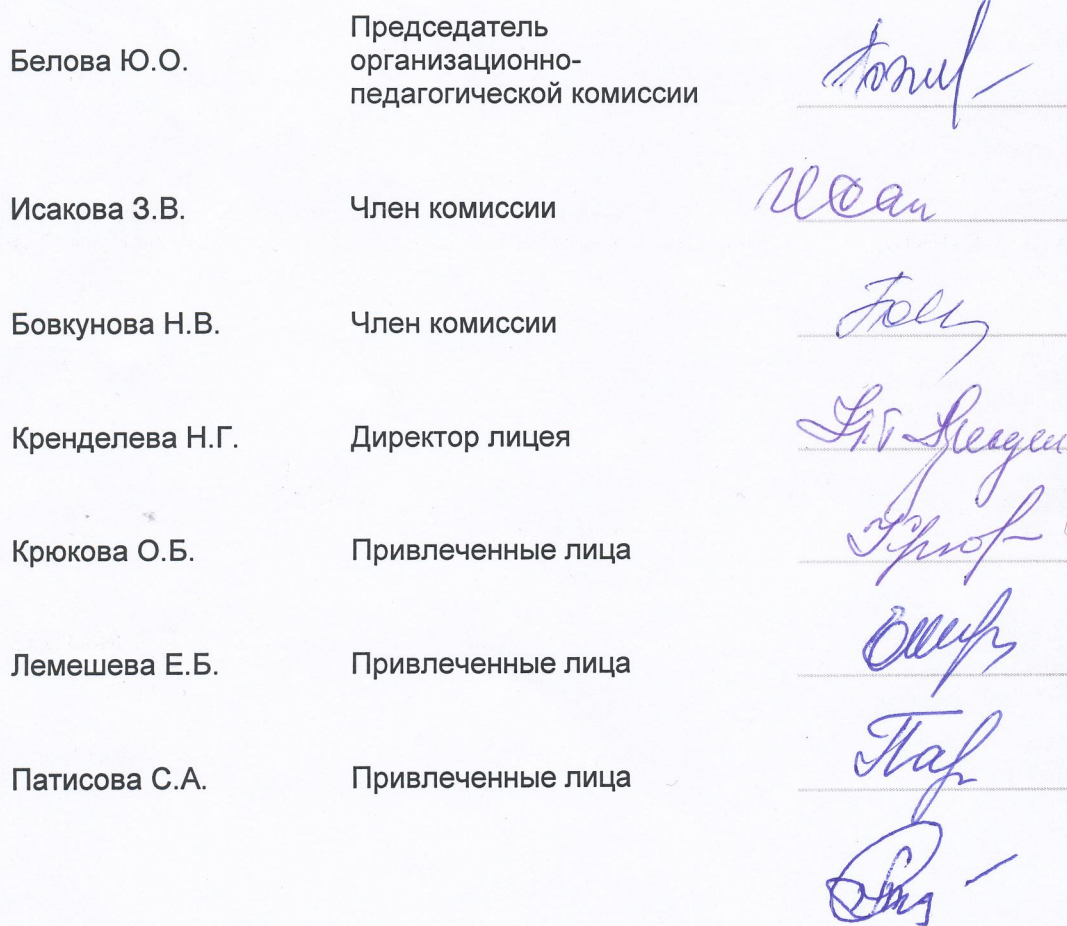 Белова Ю.О.
Председатель
организационно-
педагогической комиссии
Исакова З.В.
Член комиссии
Бовкунова Н.В.
Член комиссии
Кренделева Н.Г.
Директор лицея
Крюкова О.Б.
Привлеченные лица
Лемешева Е.Б.
Привлеченные лица
Патисова С.А.
Привлеченные лица